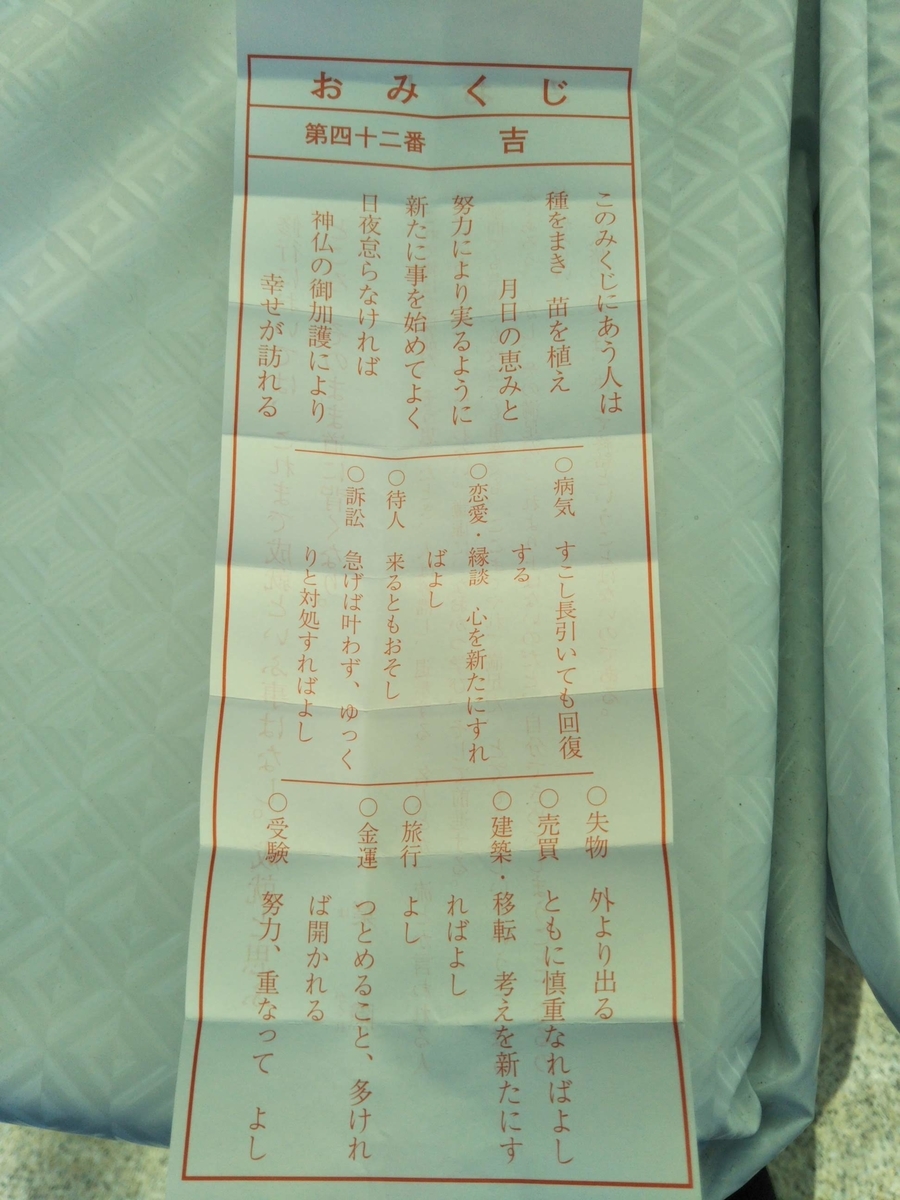 おみくじ
第四十二番　吉
このみくじにあう人は
種をまき　苗を植え
月日の恵みと
努力により実るように
新たに事を始めてよく
日夜怠らなければ
神仏の御加護により
幸せが訪れる
○病気　すこし長引いても回復
する
○恋愛・縁談　心を新たにすれ
ばよし
○待人　来るともおそし
○訴訟　急げば叶わず、ゆっく
りと対処すればよし
○失物　外より出る
○売買　ともに慎重なればよし
○建築・移転　考えを新たにす
ればよし
○旅行　よし
○金運　つとめること、多けれ
ば開かれる
○受験　努力、重なって　よし